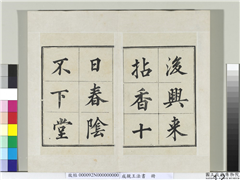 後興来
拈香十
日春陰
不下堂